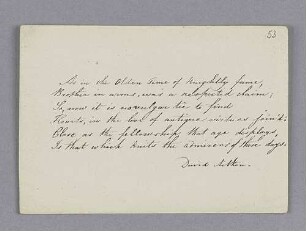 53
As in the Olden time of Knightly fame,
Brother in arms, was a respected claim;
So, now it is no vulgar tie to find
Hearts, in the love of antique virtue join'd:
Close as the fellowship that age displays,
Is that which knits the admirers of those days.
David